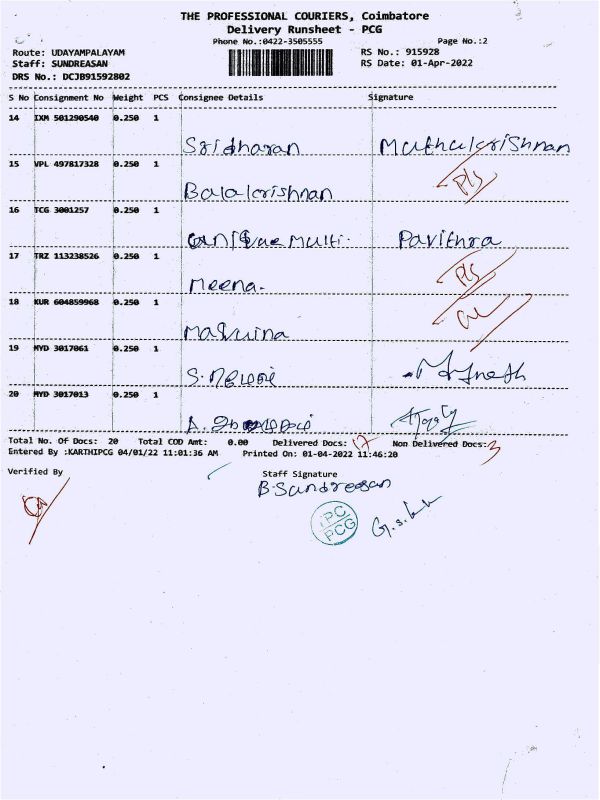 THE PROFESSIONAL COURIERS, Coimbatore
Delivery Runsheet - PCG
Phone No.:0422-3505555
Page No.:2
Route: UDAYAMPALAYAM
RS No.: 915928
Staff: SUNDREASAN
RS Date: 01-Apr-2022
DRS No.: DCJB91592802
S No Consignment No Weight PCS Consignee Details Signature
14 IXM 501290540 0.250 1
Sridharan Muthukrishnan
15 VPL 497817328 0.250 1
Balakrishnan Pls
16 TCG 3001257 0.250 1
Multi. Pavithra
17 TRZ 113238526 0.250 1
Meena. Pls
18 KUR 604859968 0.250 1
19 MYD 3017061 0.250 1
20 MYD 3017013 0.250 1
Total No. Of Docs: 20 Total COD Amt: 0.00 Delivered Docs: 17 Non Delivered Docs: 3
Entered By :KARTHIPCG 04/01/22 11:01:36 AM Printed On: 01-04-2022 11:46:20
Verified By Staff Signature
B.Sundreesan
PC
PCG